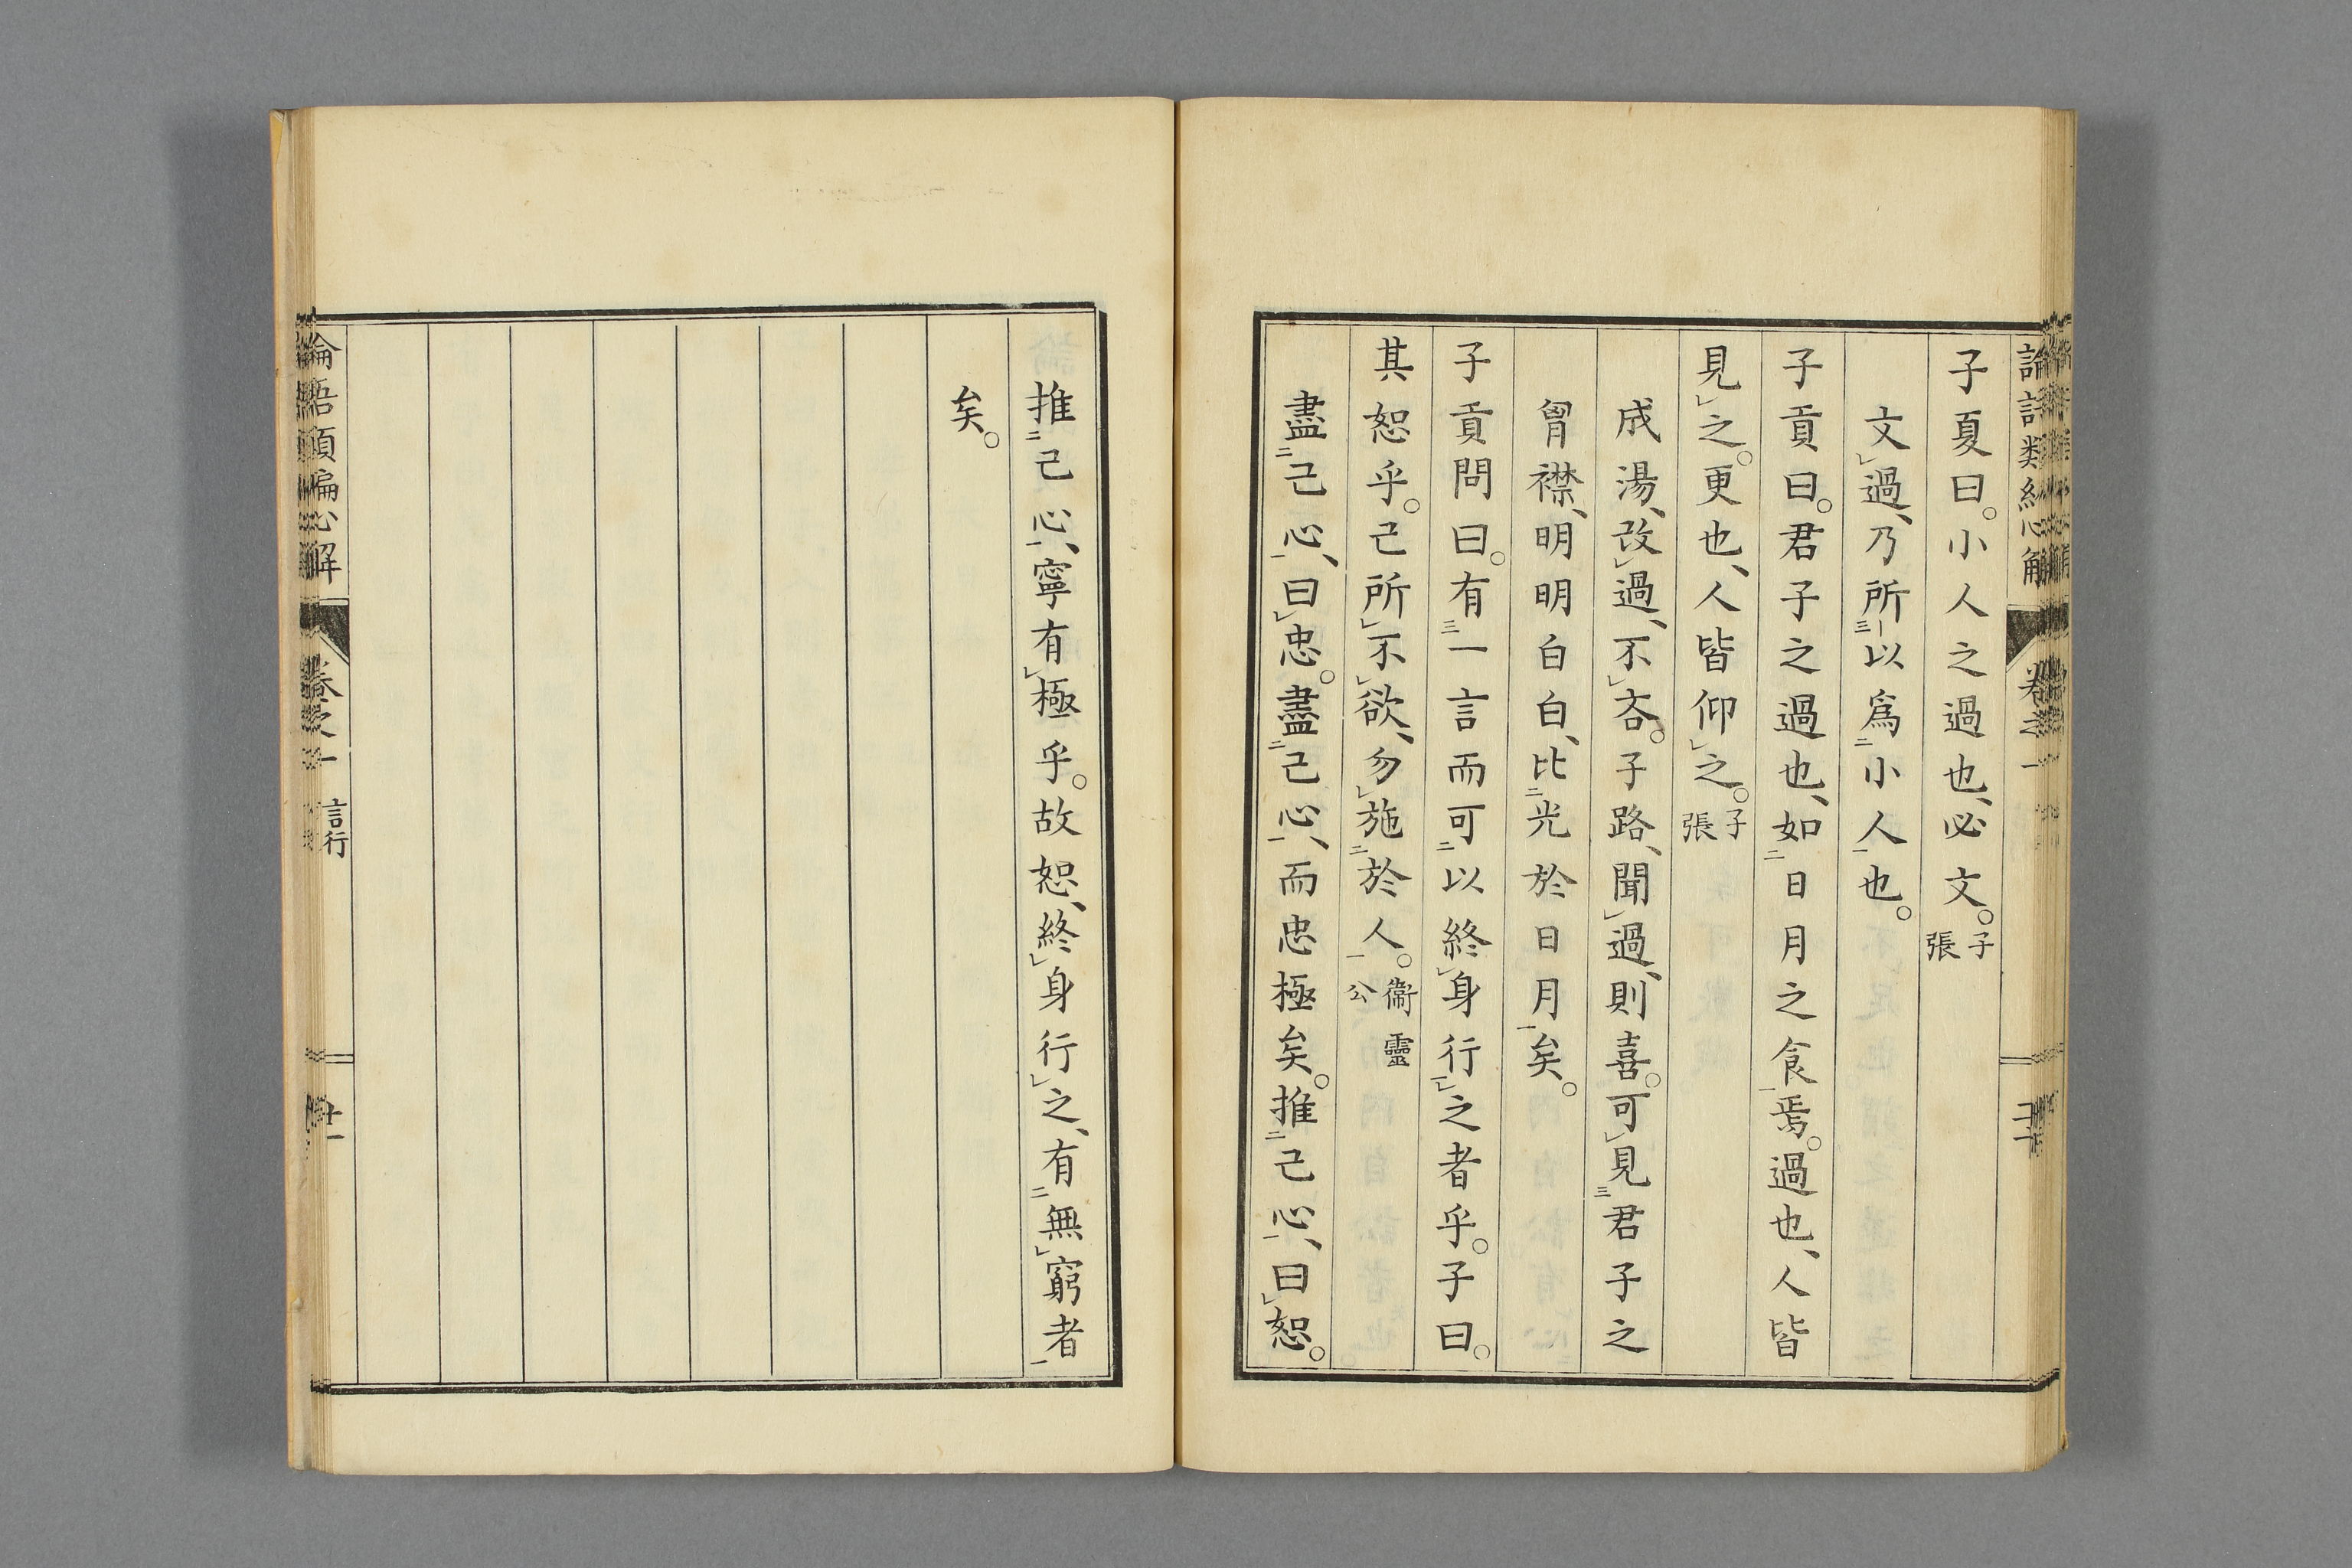 子夏曰。小人之過也、必文。子張
文過、乃所以爲小人也。
子貢曰。君子之過也、如日月之食焉。過也、人皆
見之。更也、人皆仰之。子張
成湯、改過、不吝。子路、聞過、則喜。可見君子之
胷襟、明明白白、比光於日月矣。
子貢問曰。有一言而可以終身行之者乎。子曰。
其恕乎。己所不欲、勿施於人。衞靈公
盡己心、曰忠。盡己心、而忠極矣。推己心、曰恕。
推己心、寧有極乎。故恕、終身行之、有無窮者
矣。
卷之一
言行